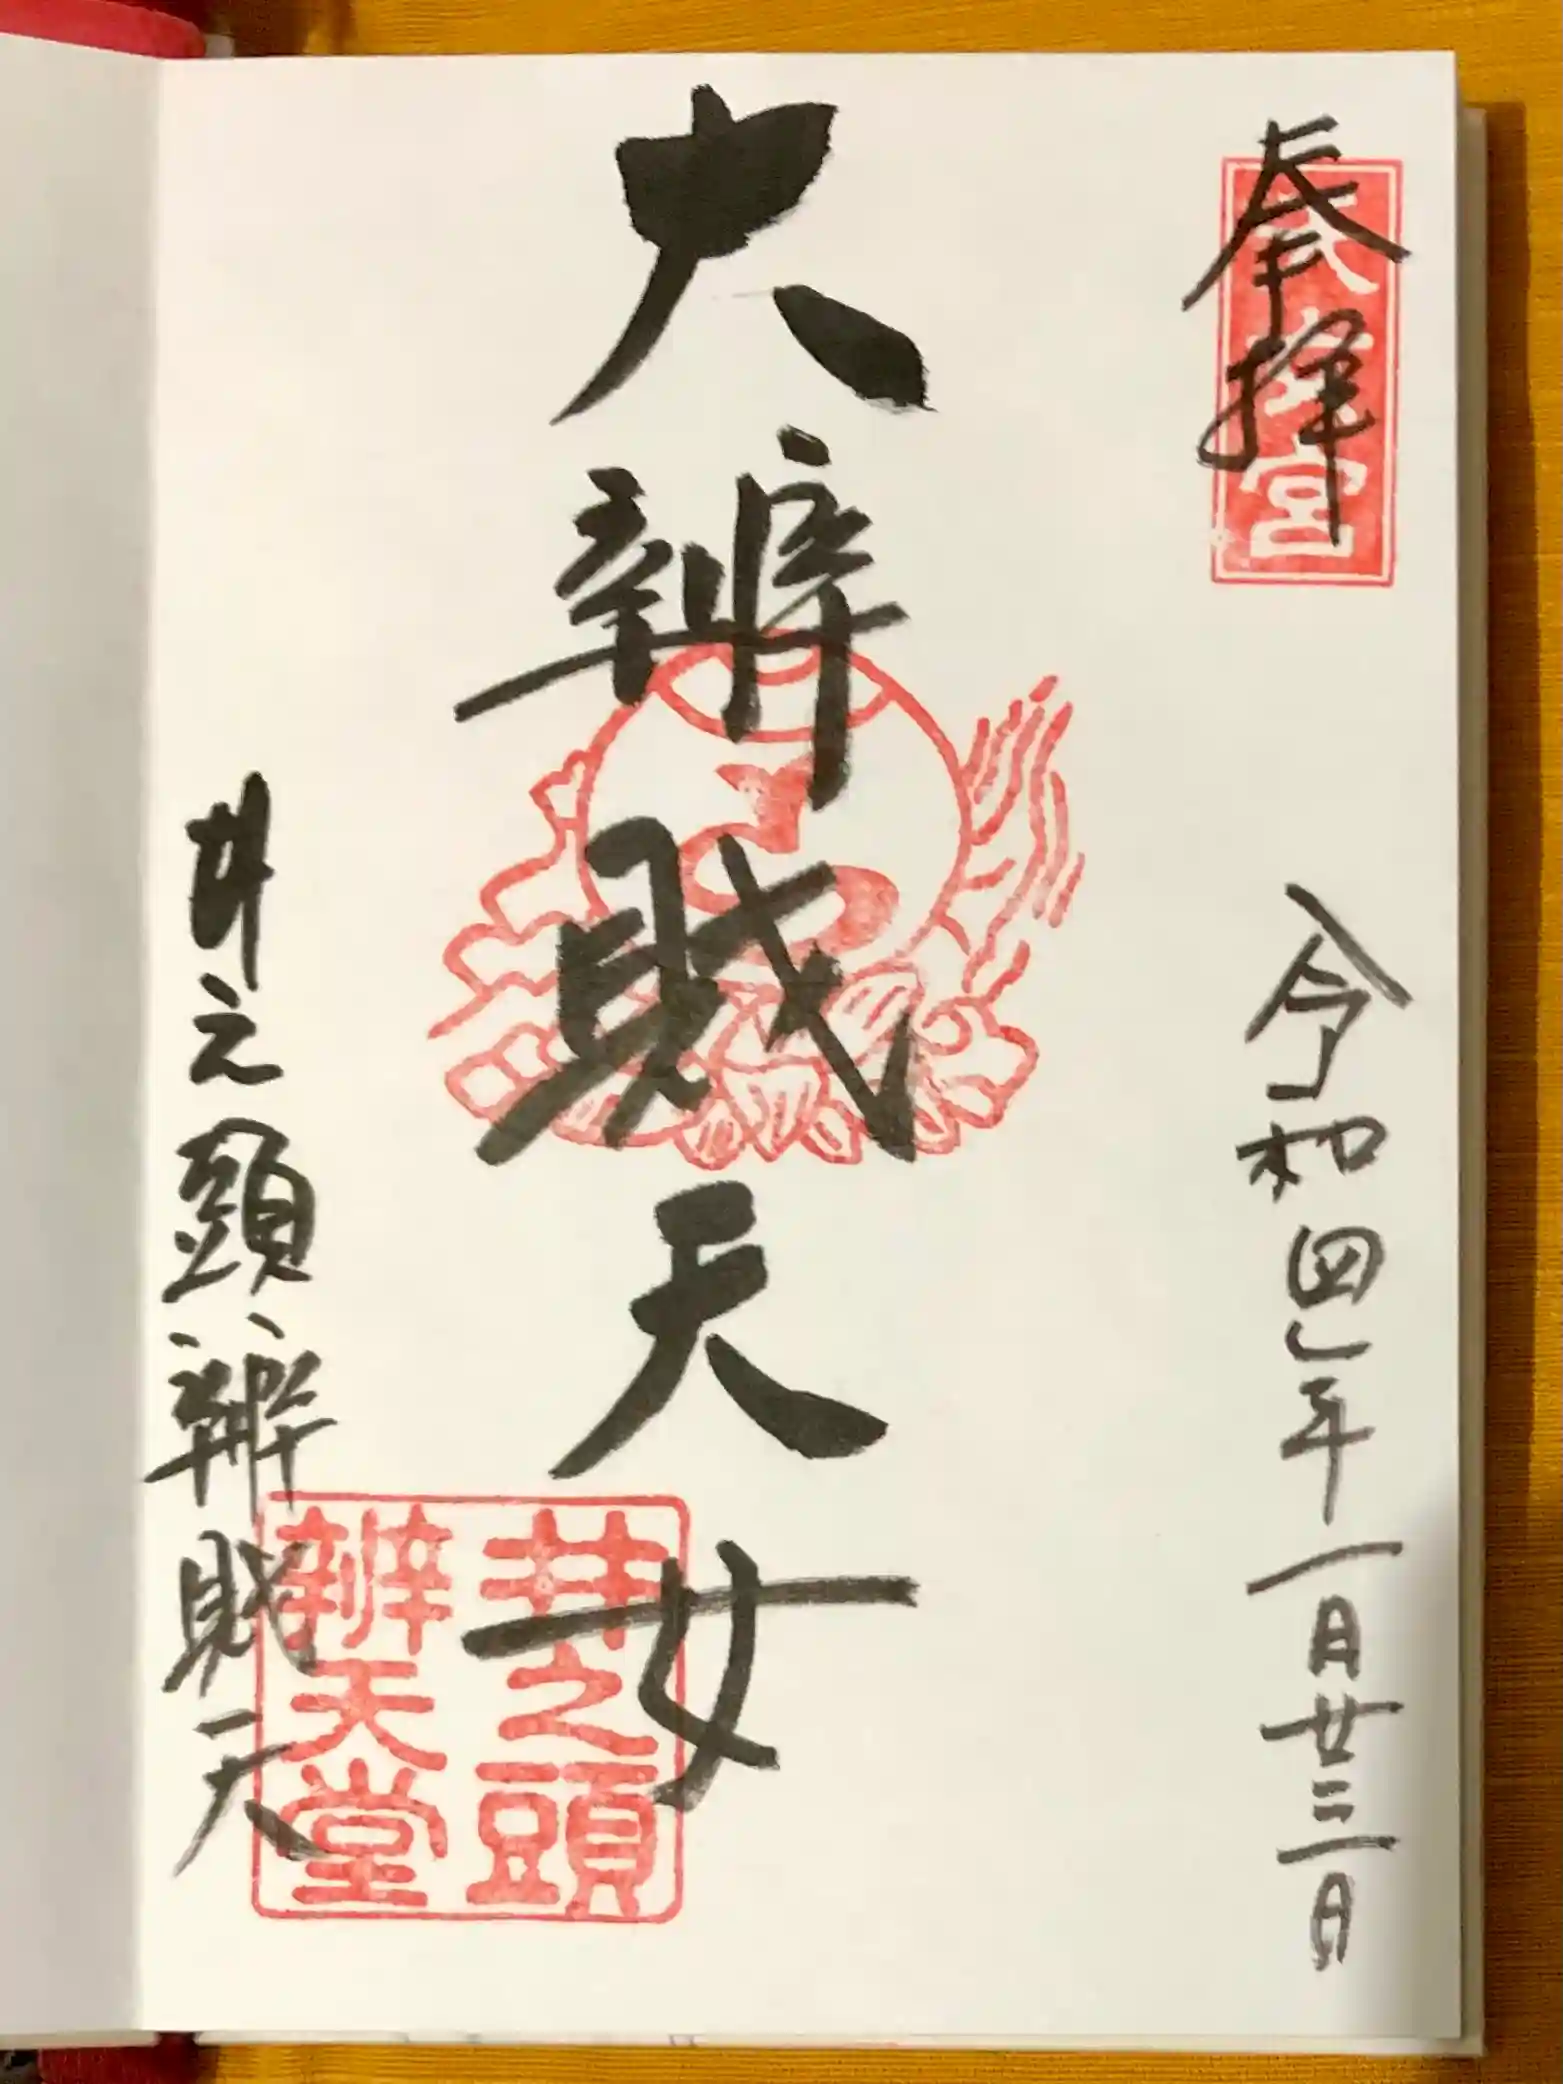 奉拝
令和四年一月廿三日
大辨財天女
井之頭辨財天
井之頭
辨天堂